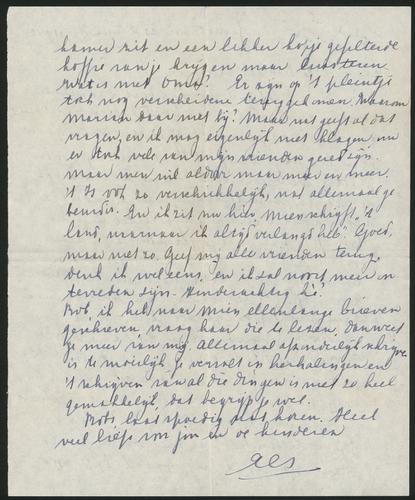 kamer zit en een lekker kopje gefilterde
koffie van je krijgen maar luisteren.
Wat is met Oma? Er zijn op 't pleintje
toch nog verscheidene teruggekomen. Waarom
Marian daar niet bij? Maar wat geeft al dat
vragen, en ik mag eigenlijk niet klagen nu
er toch vele van mijn vrienden gered zijn.
Maar men wil aldoor maar meer en meer.
't Is ook zo verschrikkelijk, wat allemaal ge-
beurd is. En ik zit nu hier. Mien schrijft, "'t
land, waarnaar ik altijd verlangd heb". Goed,
maar niet zo. Geef mij alle vrienden terug,
denk ik wel eens, en ik zal nooit meer on
tevreden zijn. Kinderachtig hè?
Bob, ik heb naar Mien ellenlange brieven
geschreven, vraag haar die te lezen, dan weet
je meer van mij. Allemaal afzonderlijk schrijven
is te moeilijk. Je vervalt in herhalingen en
't schrijven van al die dingen is niet zo heel
gemakkelijk, dat begrijp je wel.
Bob, laat spoedig iets horen. Heel
veel liefs voor jou en de kinderen
Als